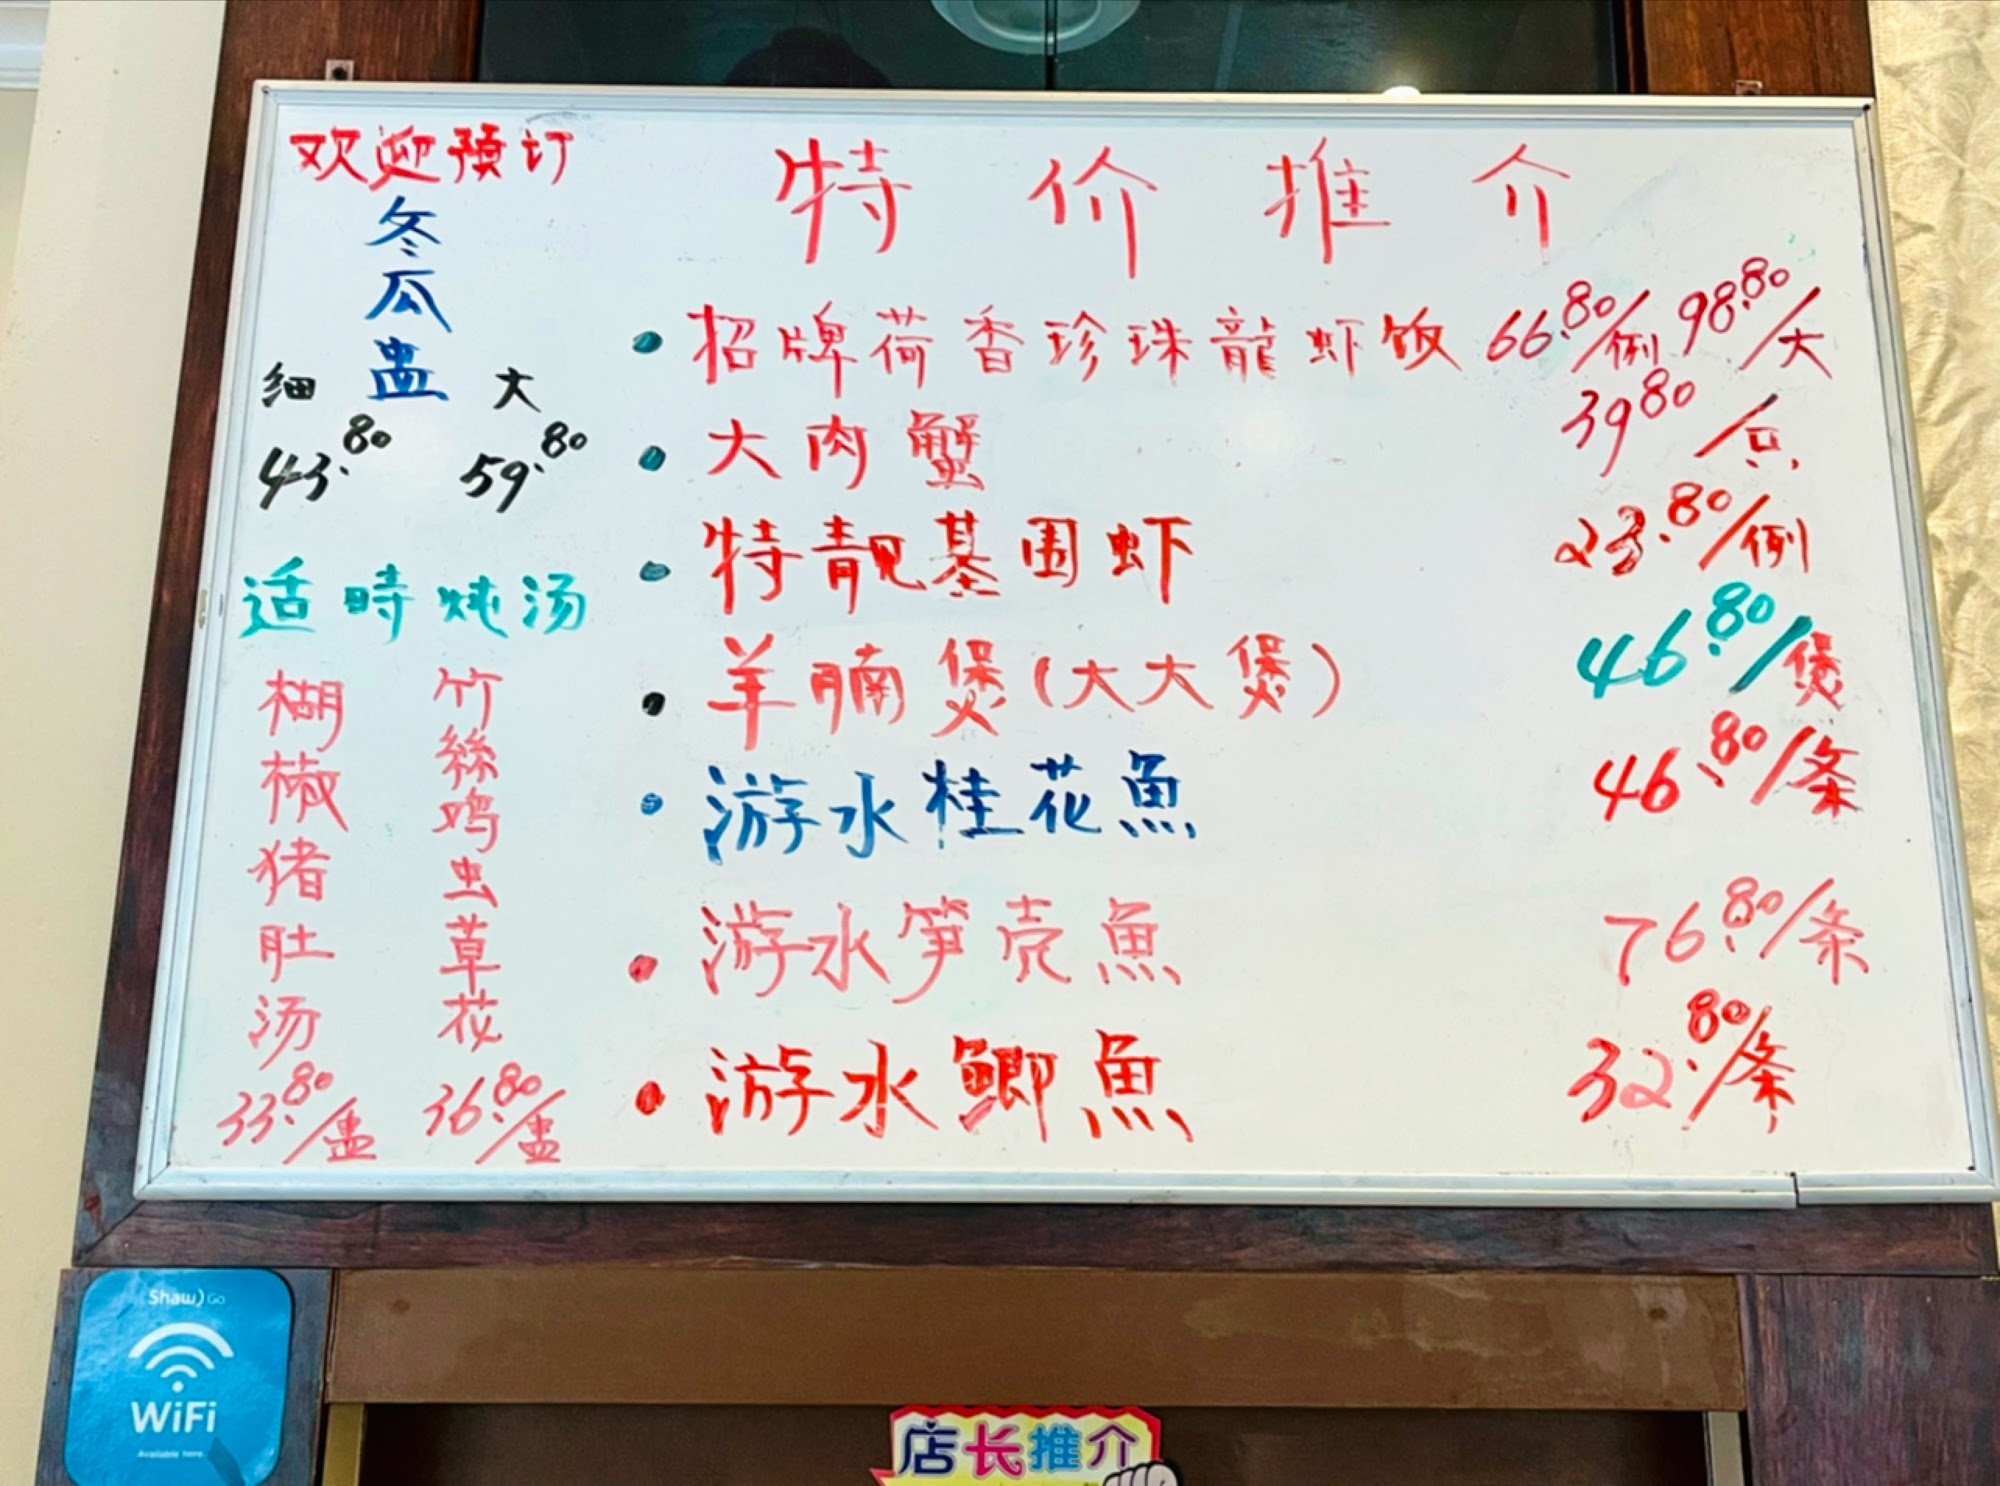 欢迎預订
冬瓜盅
细 大
43.80 59.80
适時炖汤
楜椒猪肚汤
33.80/盅
竹絲鸡虫草花
36.80/盅
特价推介
• 招牌荷香珍珠龍虾饭 66.80/例 98.80/大
• 大肉蟹 3980/只
• 特靓基围虾 23.80/例
• 羊腩煲(大大煲) 46.80/煲
• 游水桂花魚 46.80/条
• 游水笋壳魚 76.80/条
• 游水鲫魚 32.80/条
Shaw) Go
WiFi
Available here
店长推介